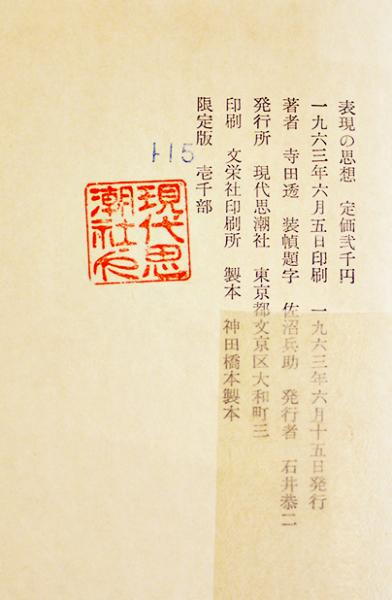 表現の思想　定価弐千円
一九六三年六月五日印刷　一九六三年六月十五日発行
著者　寺田透　装幀題字　佐沼兵助　発行者　石井恭二
発行所　現代思潮社　東京都文京区大和町三
印刷　文栄社印刷所　製本　神田橋本製本
限定版　壱千部
115
現代思
潮社印